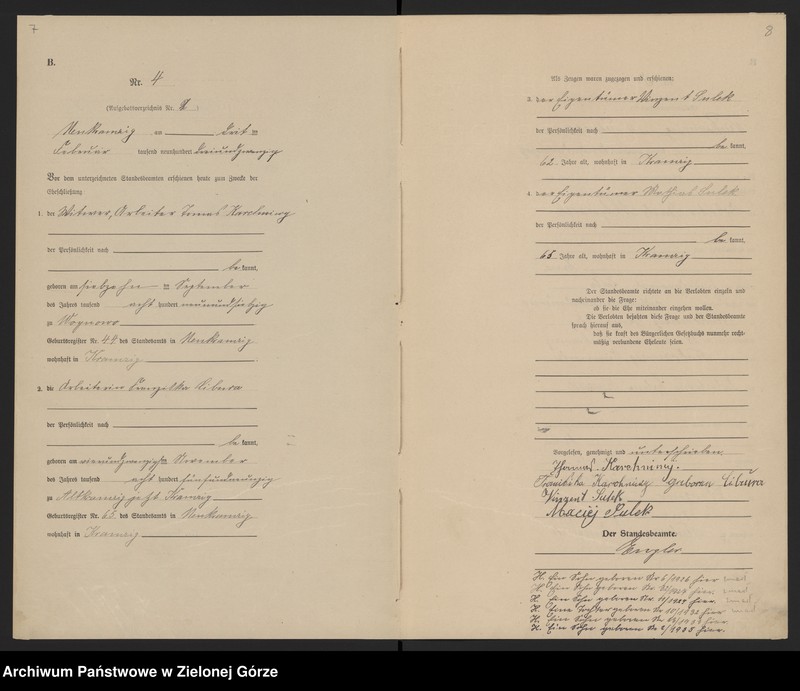 7
B.
Nr. 4
(Aufgebotsverzeichnis Nr. )
Neukramzig am
Februar tausend neunhundert dreiundzwanzig
Vor dem unterzeichneten Standesbeamten erschienen heute zum Zwecke der
Eheschließung
1. der Witwer, Arbeiter Tomas
der Persönlichkeit nach
be kannt,
geboren am siebzehn ten September
des Jahres tausend acht hundert neunundsiebzig
zu
Geburtsregister Nr. 42 des Standesamts in Neukramzig
wohnhaft in Kramzig
2. die Arbeiterin Libera
der Persönlichkeit nach
be kannt,
geboren am vierundzwanzigsten November
des Jahres tausend acht hundert fünfundneunzig
zu Altkramzig jetzt Kramzig
Geburtsregister Nr. 65 des Standesamts in Neukramzig
wohnhaft in Kramzig
8
Als Zeugen waren zugezogen und erschienen:
3. der Eigentümer Vinzent Sulek
der Persönlichkeit nach
be kannt,
62 Jahre alt, wohnhaft in Kramzig
4. der Eigentümer Mathias Sulek
der Persönlichkeit nach
be kannt,
65 Jahre alt, wohnhaft in Kramzig
Der Standesbeamte richtete an die Verlobten einzeln und
nacheinander die Frage:
ob sie die Ehe miteinander eingehen wollen.
Die Verlobten bejahten diese Frage und der Standesbeamte
sprach hierauf aus,
daß sie kraft des Bürgerlichen Gesetzbuchs nunmehr recht-
mäßig verbundene Eheleute seien.
Vorgelesen, genehmigt und unterschrieben
Thomas
geboren Libera
Vinzent Sulek
Maciej Sulek
Der Standesbeamte.
H. Ein Sohn geboren Nr. hier
H. Ein Sohn geboren Nr. hier
H. Ein Sohn geboren Nr. hier
H. Eine Tochter geboren Nr. hier
H. Ein Sohn geboren Nr. hier
H. Ein Sohn geboren Nr. hier.
Archiwum Państwowe w Zielonej Górze